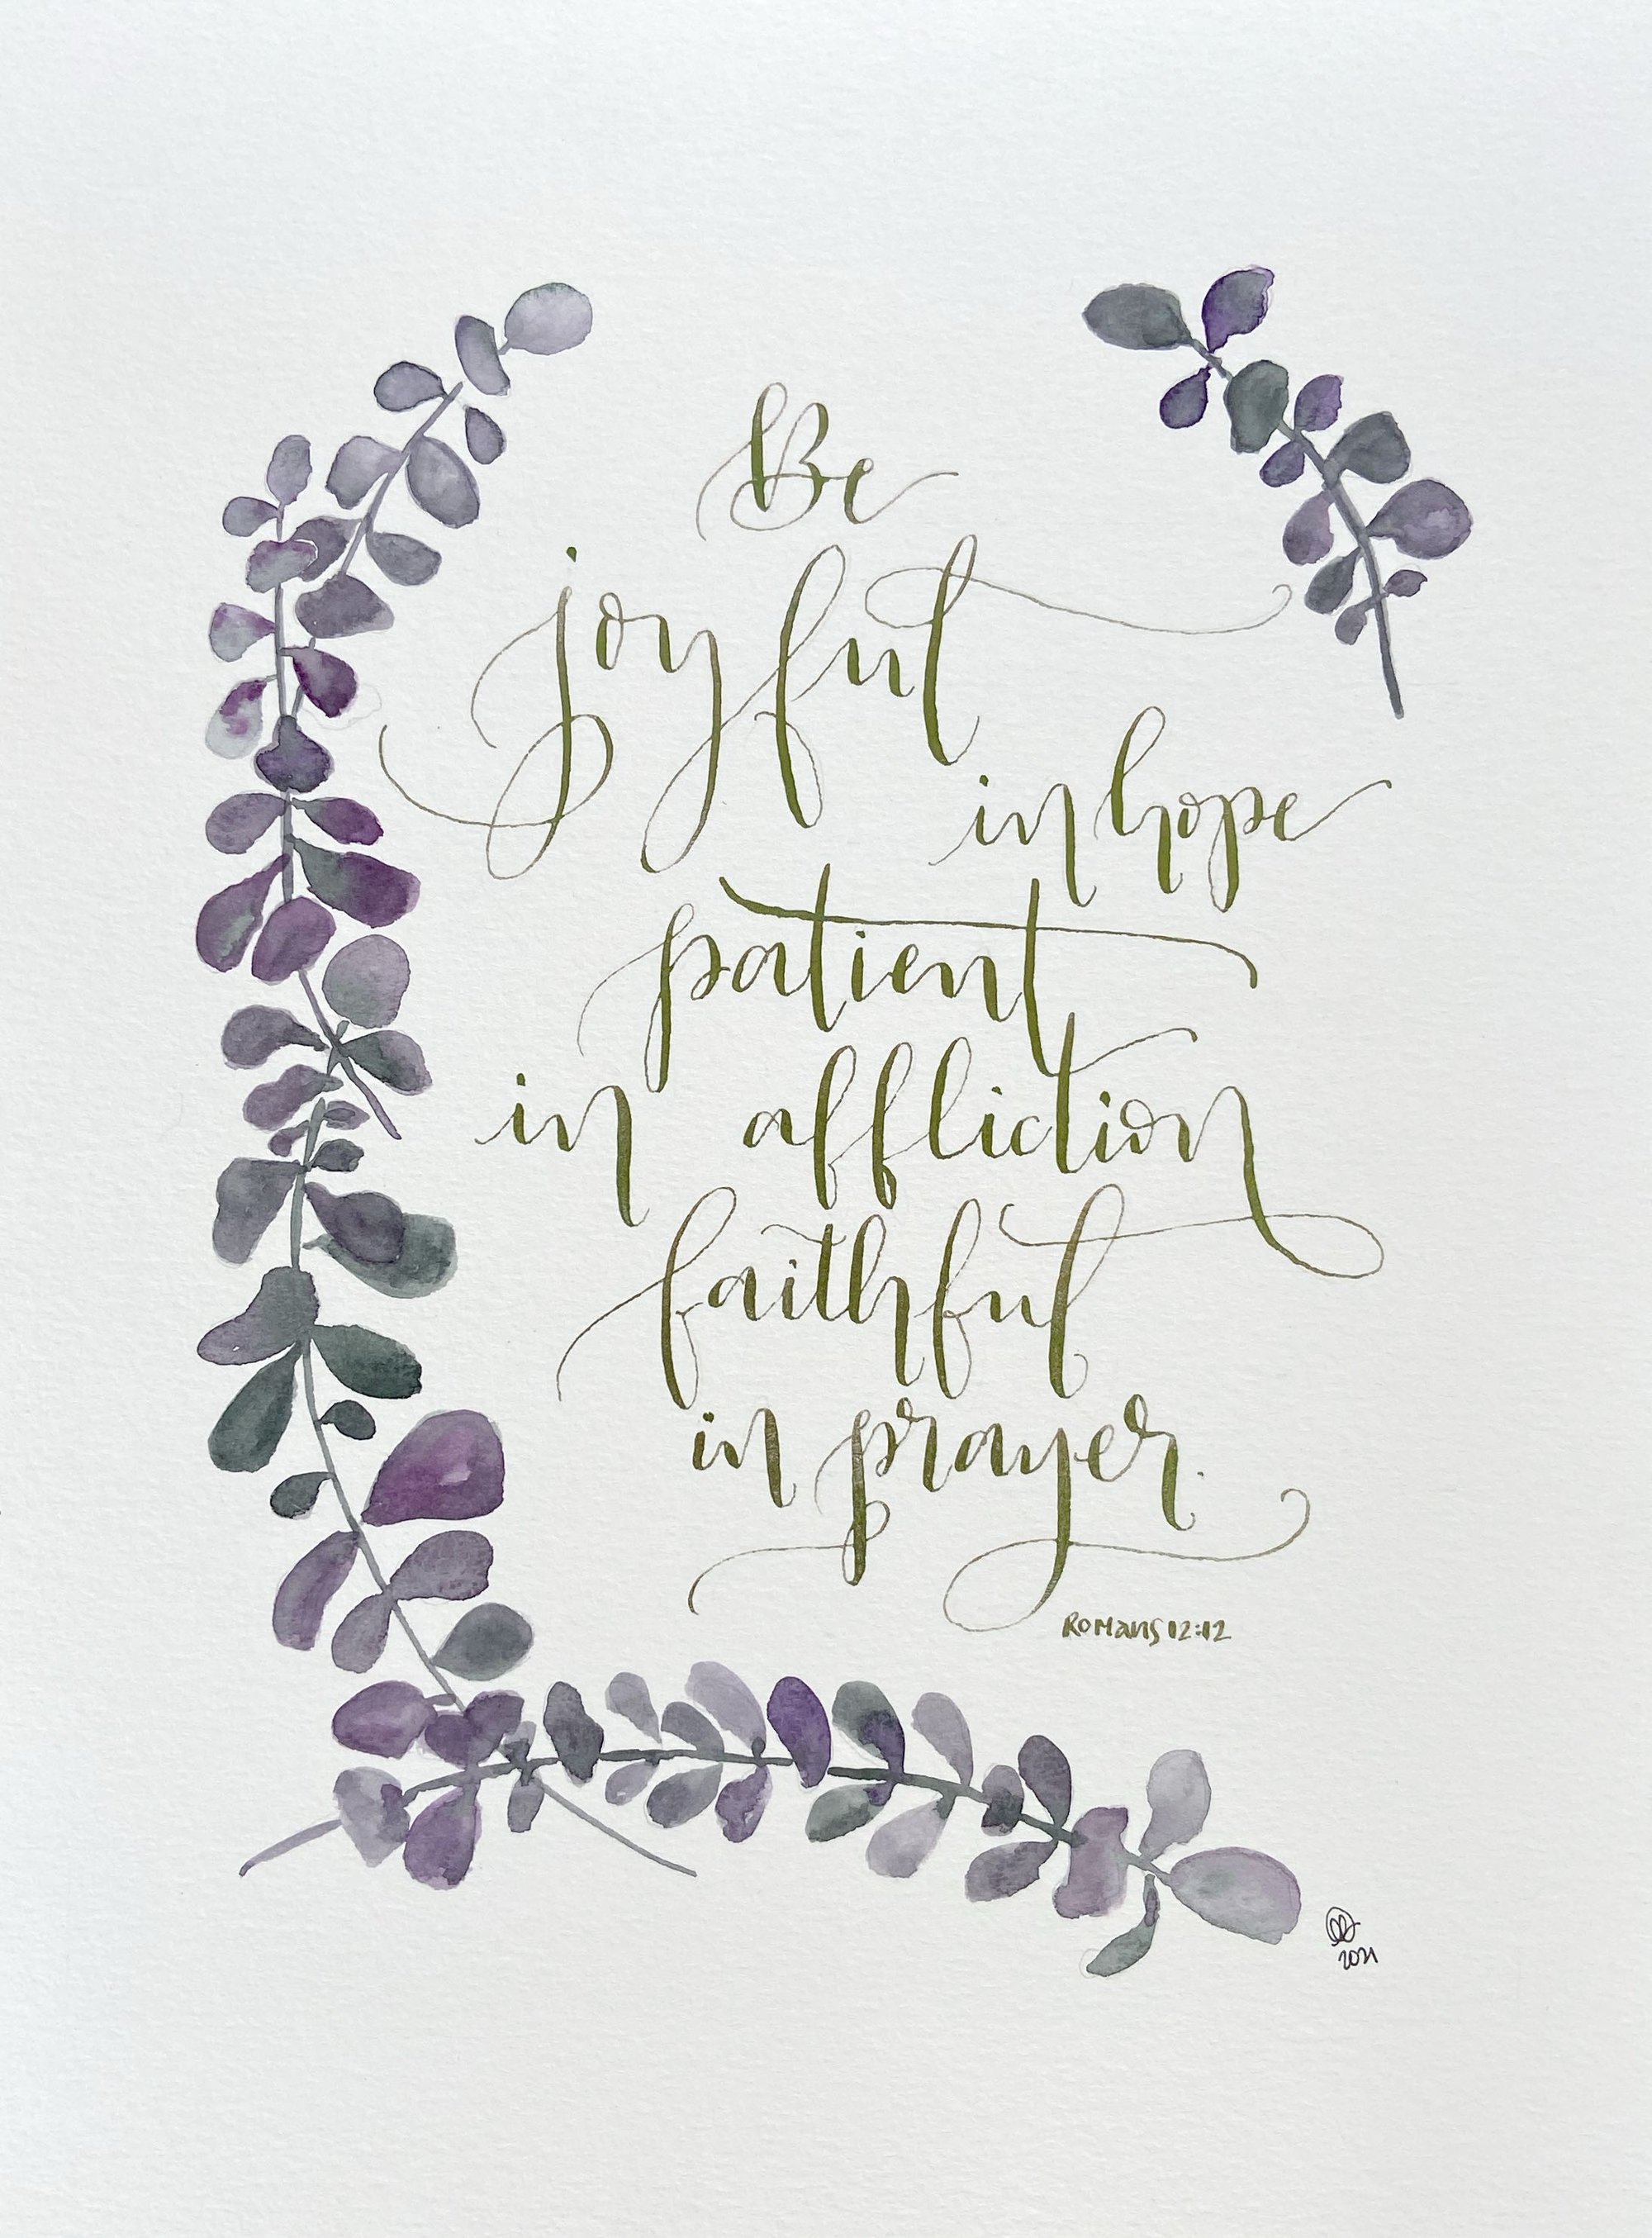 Be
joyful
in hope
patient
in affliction
faithful
in prayer.
Romans 12:12
2021